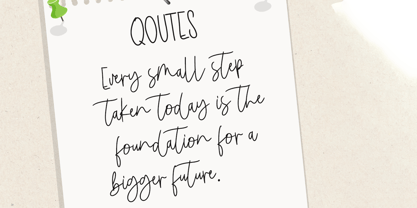 QOUTES
Every small step
taken today is the
foundation for a
bigger future.